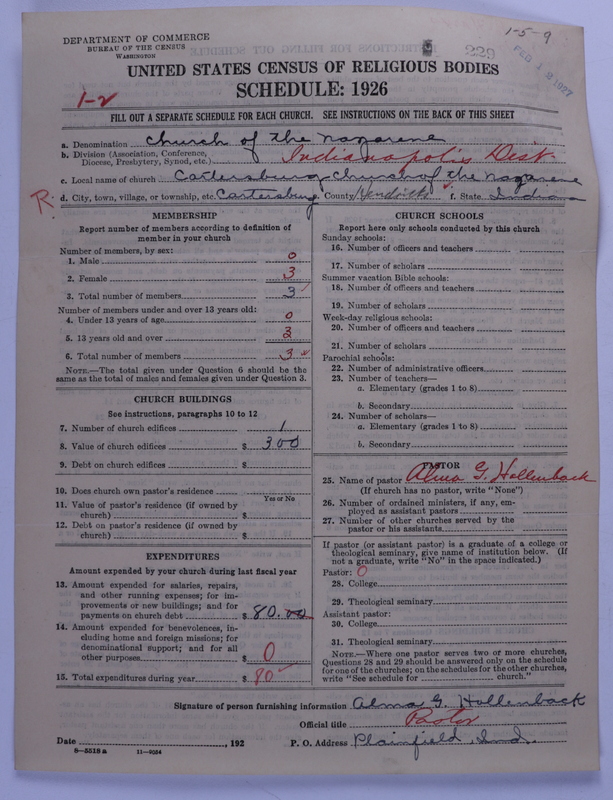 1-5-9
DEPARTMENT OF COMMERCE
BUREAU OF THE CENSUS
WASHINGTON
229
FEB 12 1927
UNITED STATES CENSUS OF RELIGIOUS BODIES
SCHEDULE: 1926
1-2
FILL OUT A SEPARATE SCHEDULE FOR EACH CHURCH. SEE INSTRUCTIONS ON THE BACK OF THIS SHEET
a. Denomination Church of the Nazarene
b. Division (Association, Conference, Diocese, Presbytery, Synod, etc.) Indianapolis Dist
c. Local name of church Cartersburg Church of the Nazarene
R. d. City, town, village, or township, etc. Cartersburg County Hendricks f. State Indiana
MEMBERSHIP
Report number of members according to definition of
member in your church
Number of members, by sex:
1. Male 0
2. Female 3
3. Total number of members 3
Number of members under and over 13 years old:
4. Under 13 years of age 0
5. 13 years old and over 3
6. Total number of members 3
NOTE.—The total given under Question 6 should be the
same as the total of males and females given under Question 3.
CHURCH BUILDINGS
See instructions, paragraphs 10 to 12
7. Number of church edifices 1
8. Value of church edifices $ 300
9. Debt on church edifices $
10. Does church own pastor's residence
Yes or No
11. Value of pastor's residence (if owned by
church) $
12. Debt on pastor's residence (if owned by
church) $
EXPENDITURES
Amount expended by your church during last fiscal year
13. Amount expended for salaries, repairs,
and other running expenses; for im-
provements or new buildings; and for
payments on church debt $ 80.00
14. Amount expended for benevolences, in-
cluding home and foreign missions; for
denominational support; and for all
other purposes $ 0
15. Total expenditures during year $ 80
CHURCH SCHOOLS
Report here only schools conducted by this church
Sunday schools:
16. Number of officers and teachers
17. Number of scholars
Summer vacation Bible schools:
18. Number of officers and teachers
19. Number of scholars
Week-day religious schools:
20. Number of officers and teachers
21. Number of scholars
Parochial schools:
22. Number of administrative officers
23. Number of teachers—
a. Elementary (grades 1 to 8)
b. Secondary
24. Number of scholars—
a. Elementary (grades 1 to 8)
b. Secondary
PASTOR
25. Name of pastor Alma G. Hollenback
(If church has no pastor, write "None")
26. Number of ordained ministers, if any, em-
ployed as assistant pastors
27. Number of other churches served by the
pastor or his assistants
If pastor (or assistant pastor) is a graduate of a college or
theological seminary, give name of institution below. (If
not a graduate, write "No" in the space indicated.)
Pastor: 0
28. College
29. Theological seminary
Assistant pastor:
30. College
31. Theological seminary
NOTE.—Where one pastor serves two or more churches,
Questions 28 and 29 should be answered only on the schedule
for one of the churches; on the schedules for the other churches,
write "See schedule for church."
Signature of person furnishing information Alma G. Hollenback
Official title Pastor
Date , 192 P. O. Address Plainfield, Ind.
8—5518 a 11—9054